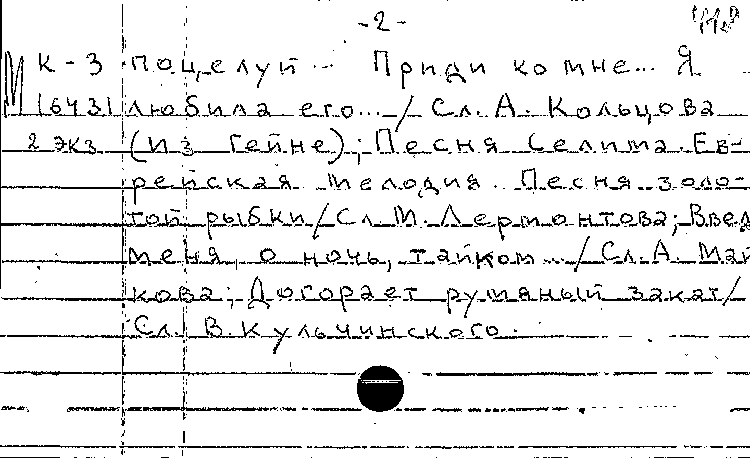 -2-
М К-3 поцелуй... Приди ко мне... Я
16431 любила его.../Сл. А. Кольцова
2 экз (из Гейне); Песня Селима. Ев-
рейская мелодия. Песня золо-
той рыбки/Сл. М. Лермонтова; Введи
меня, о ночь, тайком.../Сл. А. Май
кова; Догорает румяный закат/
Сл. В. Кульчинского.